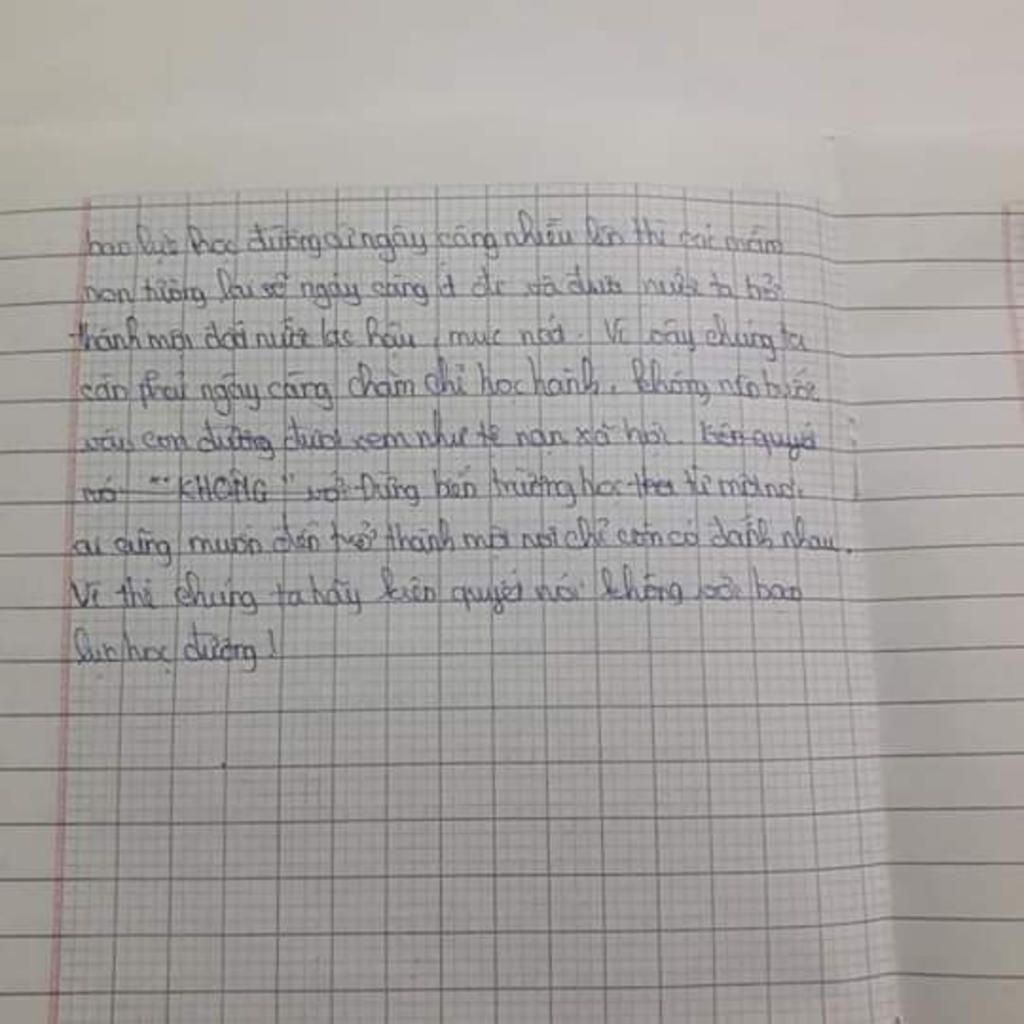 bạo lực học đường cứ ngày càng nhiều lên thì các mầm
non tương lai sẽ ngày càng ít đi và đưa nước ta trở
thành một đất nước lạc hậu, mục nát. Vì vậy chúng ta
cần phải ngày càng chăm chỉ học hành, không nên bước
vào con đường được xem như tệ nạn xã hội. Kiên quyết
nói "KHÔNG" với Đừng biến trường học từ một nơi
ai cũng muốn đến trở thành một nơi chỉ còn có đánh nhau.
Vì thế chúng ta hãy kiên quyết nói không với bạo
lực học đường!